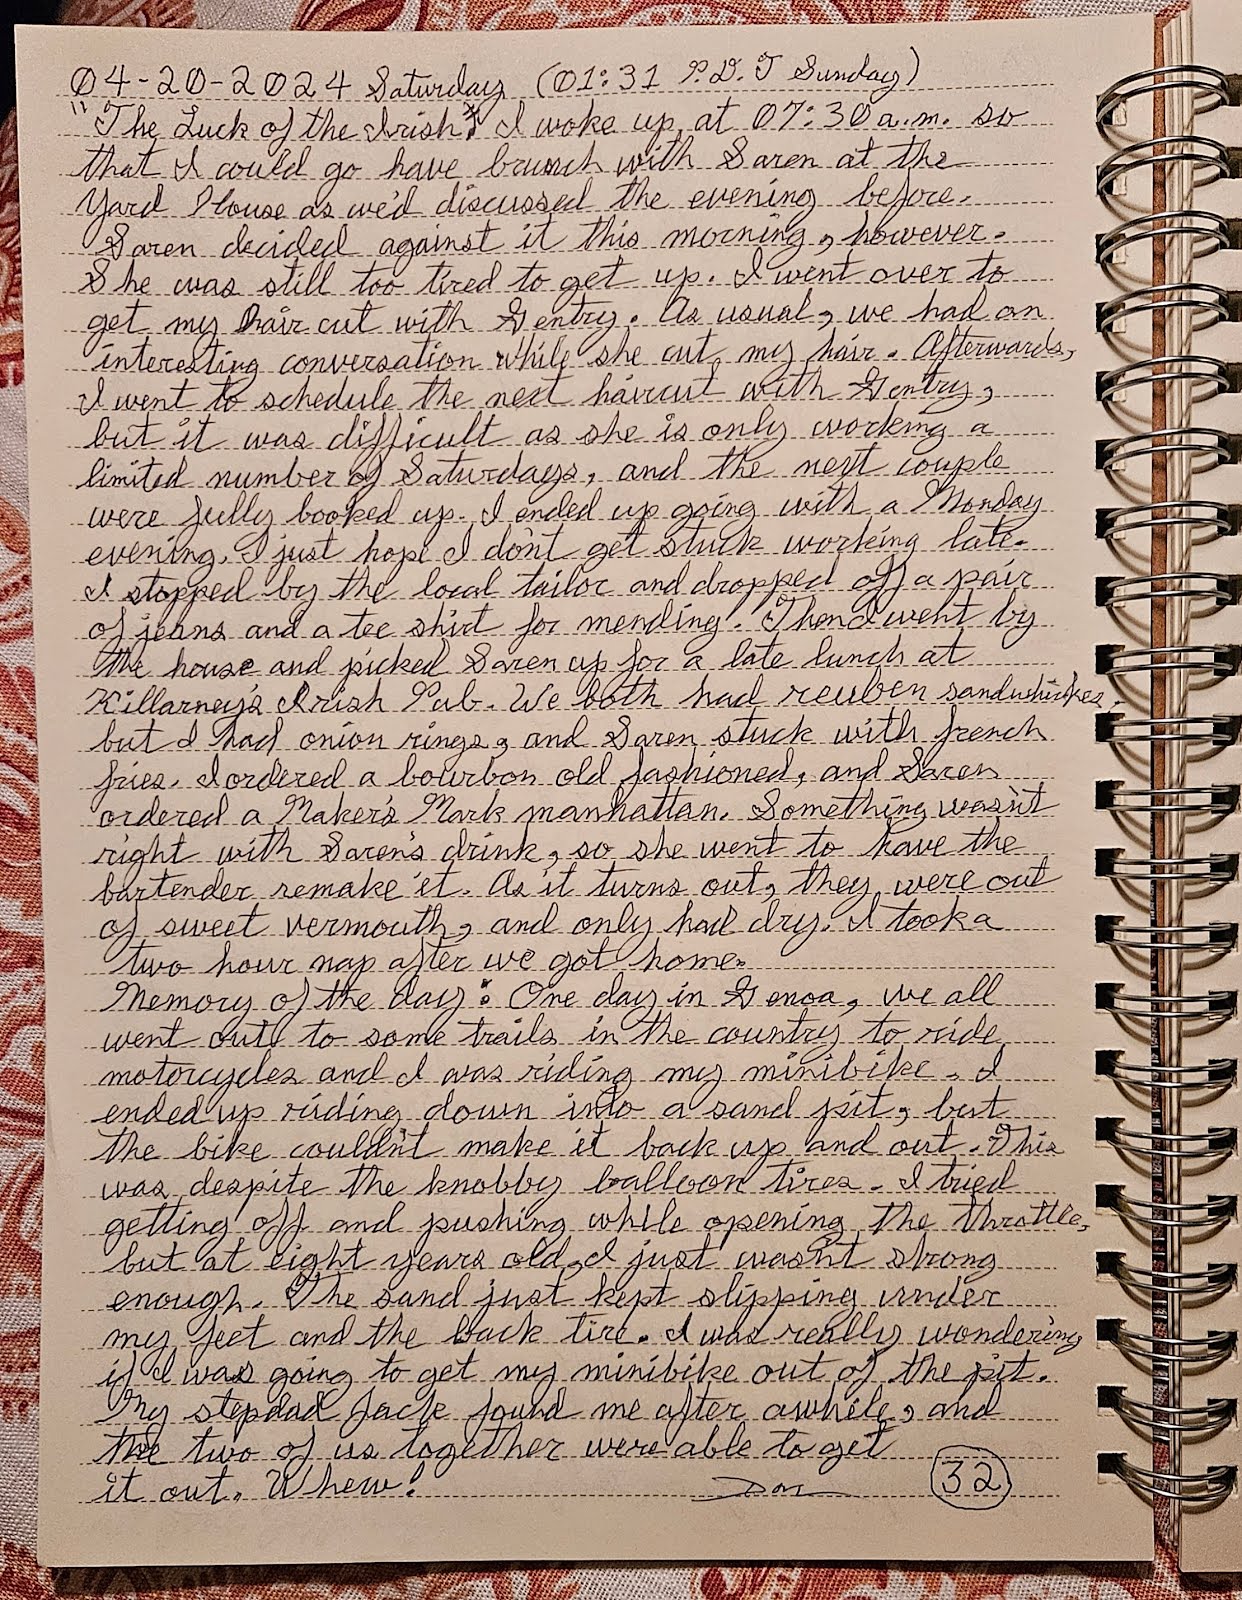 04-20-2024 Saturday (01:31 P.D.T Sunday)
"The Luck of the Irish": I woke up at 07:30 a.m. so
that I could go have brunch with Saren at the
Yard House as we'd discussed the evening before.
Saren decided against it this morning, however.
She was still too tired to get up. I went over to
get my hair cut with Gentry. As usual, we had an
interesting conversation while she cut my hair. Afterwards,
I went to schedule the next haircut with Gentry,
but it was difficult as she is only working a
limited number of Saturdays, and the next couple
were fully booked up. I ended up going with a Monday
evening. I just hope I don't get stuck working late.
I stopped by the local tailor and dropped off a pair
of jeans and a tee shirt for mending. Then I went by
the house and picked Saren up for a late lunch at
Killarney's Irish Pub. We both had reuben sandwhiches,
but I had onion rings, and Saren stuck with french
fries. I ordered a bourbon old fashioned, and Saren
ordered a Maker's Mark manhattan. Something wasn't
right with Saren's drink, so she went to have the
bartender remake it. As it turns out, they were out
of sweet vermouth, and only had dry. I took a
two hour nap after we got home.
Memory of the day: One day in Genoa, we all
went out to some trails in the country to ride
motorcycles and I was riding my minibike. I
ended up riding down into a sand pit, but
the bike couldn't make it back up and out. This
was despite the knobby balloon tires. I tried
getting off and pushing while opening the throttle,
but at eight years old, I just wasn't strong
enough. The sand just kept slipping under
my feet and the back tire. I was really wondering
if I was going to get my minibike out of the pit.
My stepdad Jack found me after awhile, and
the two of us together were able to get
it out. Whew! Don 32